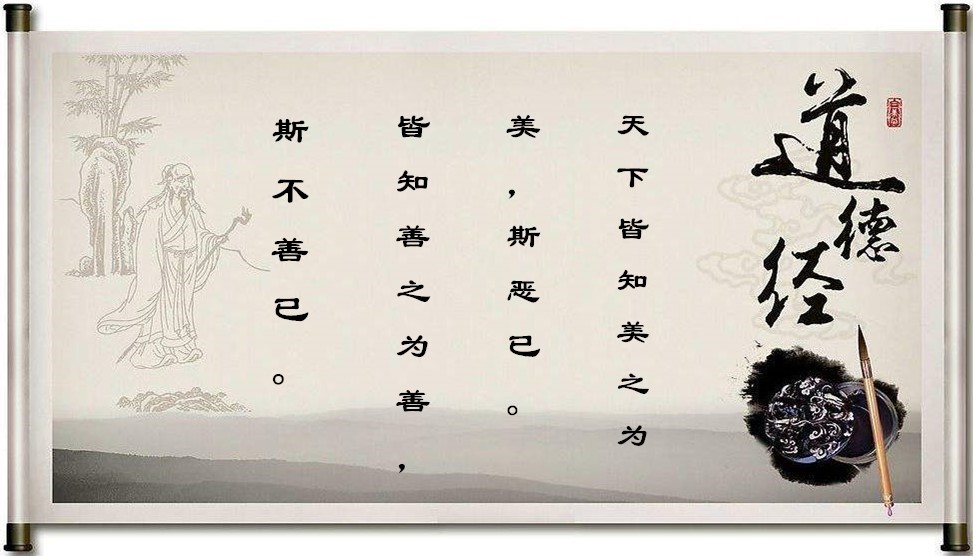 道德经
天下皆知美之为
美，斯恶已。
皆知善之为善，
斯不善已。